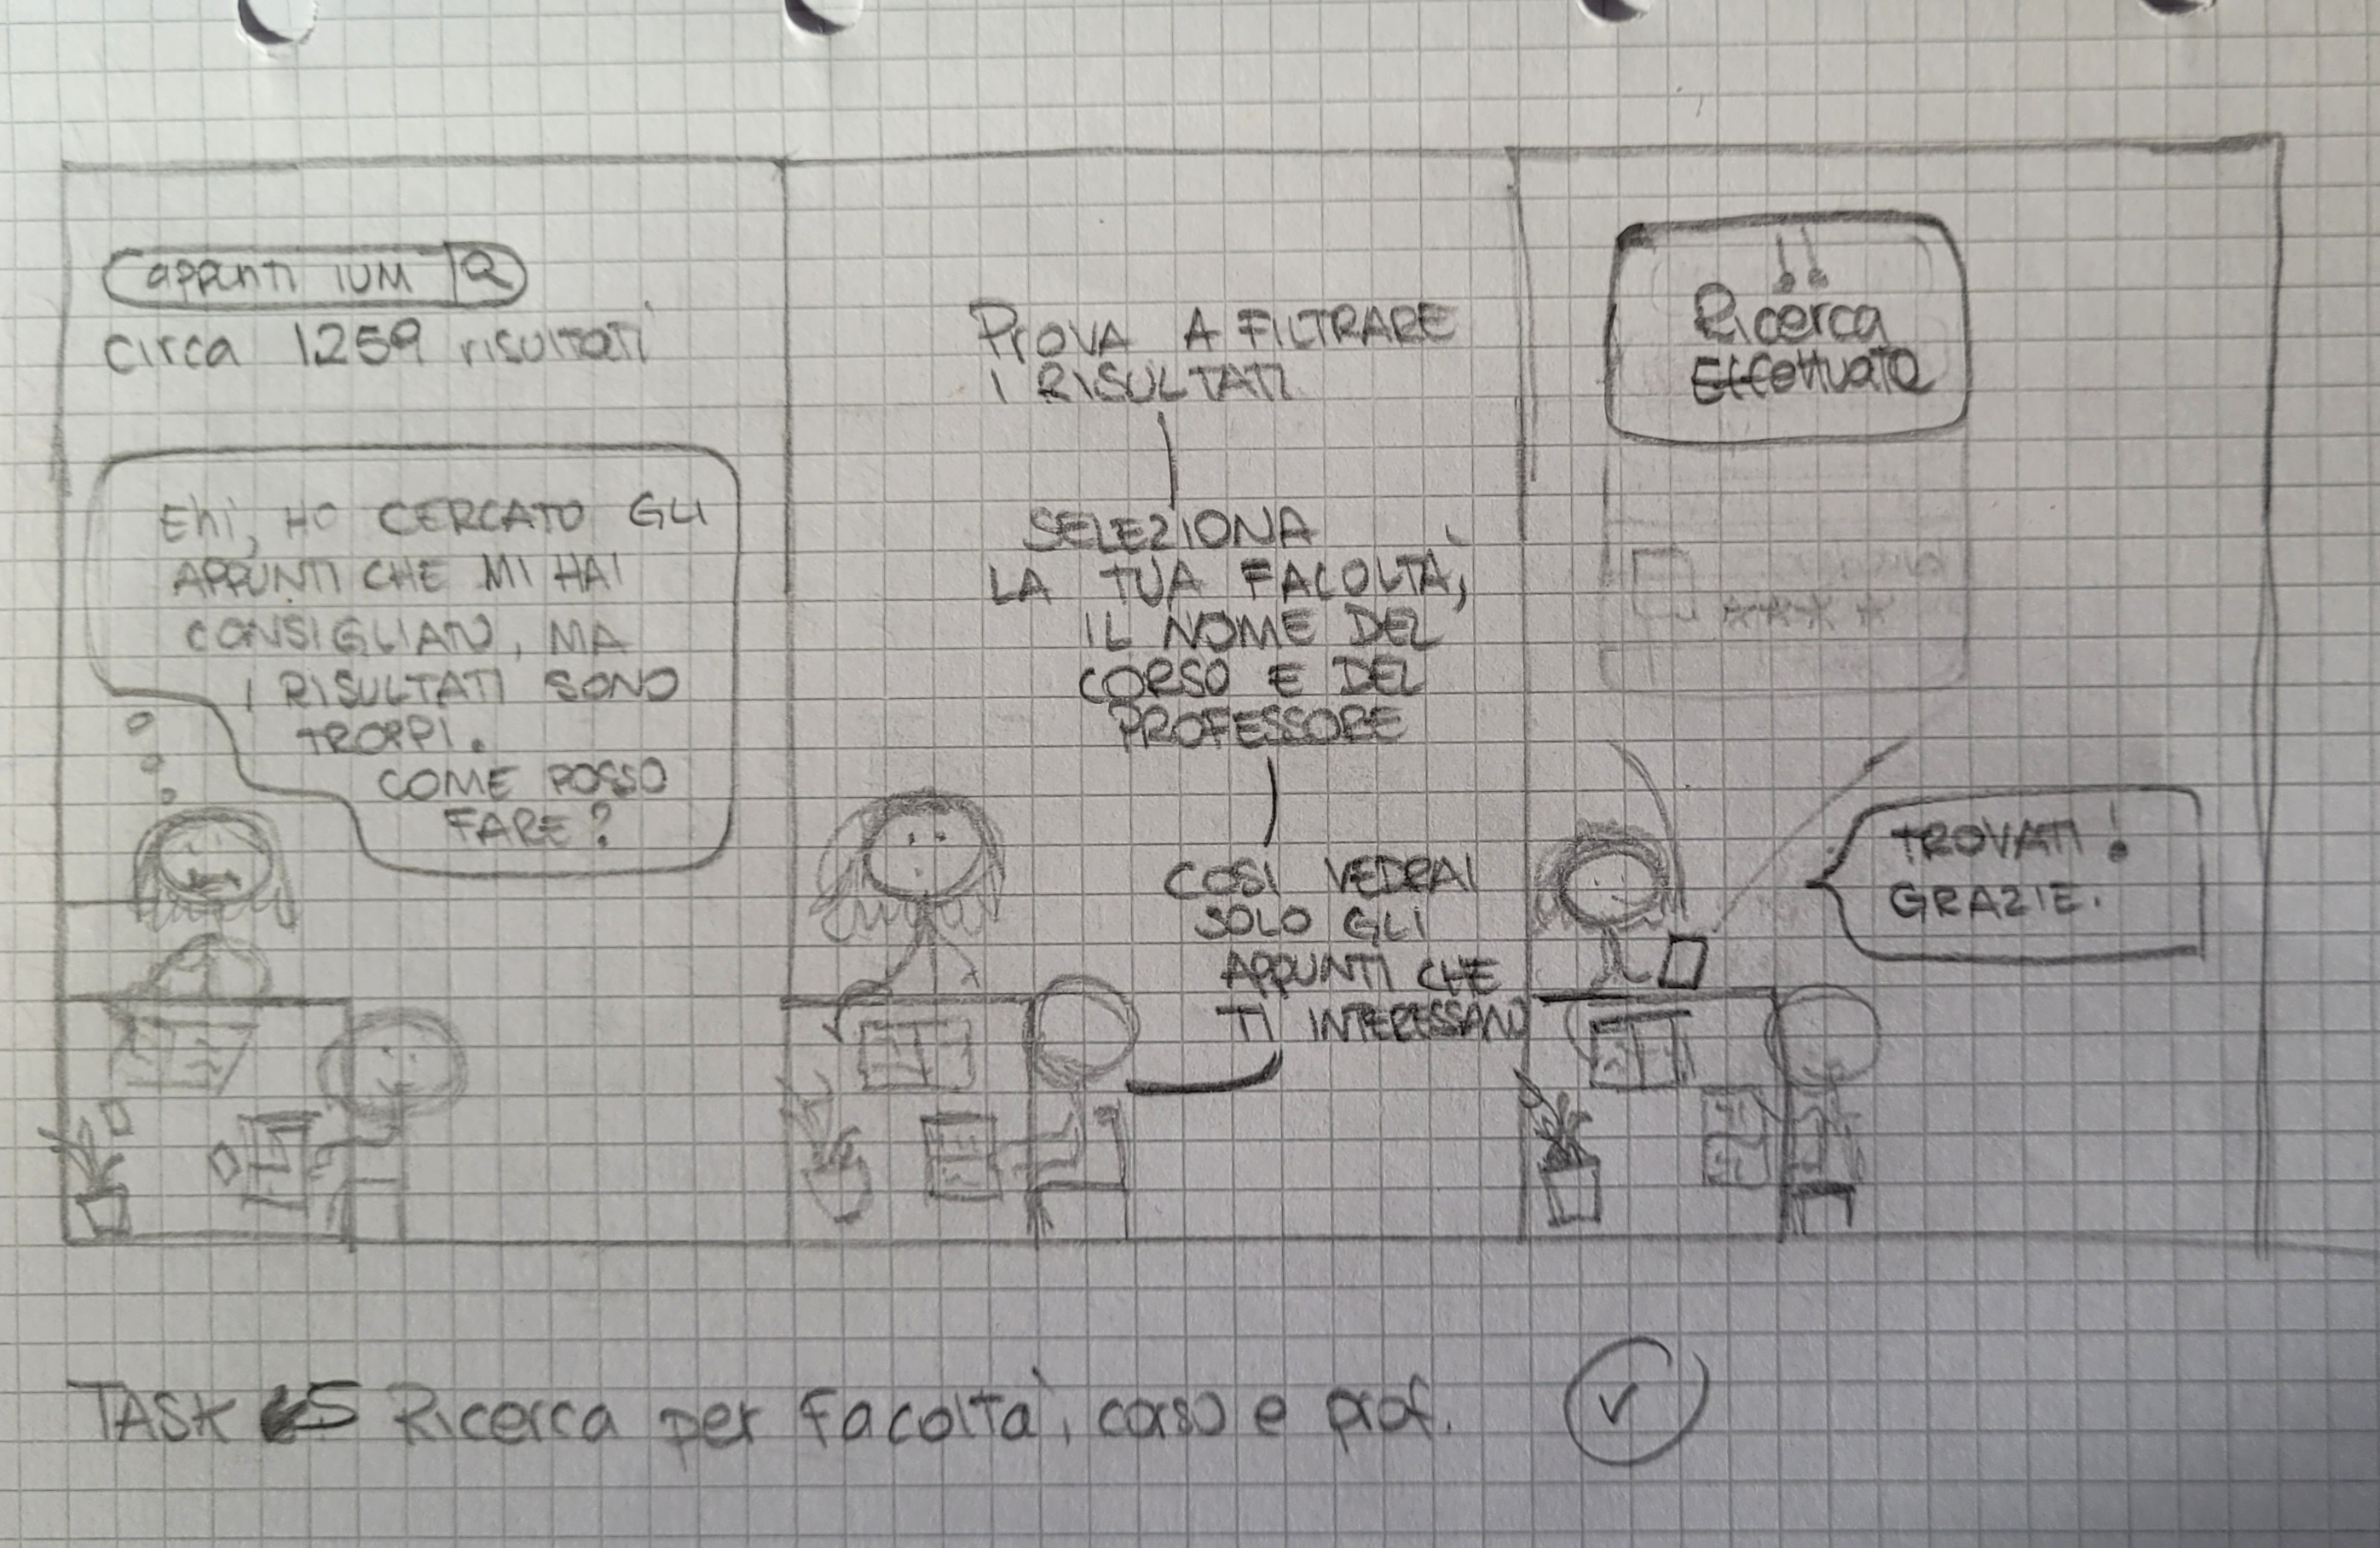 appunti IUM
circa 1259 risultati
Ehi, HO CERCATO GLI
APPUNTI CHE MI HAI
CONSIGLIATO, MA
I RISULTATI SONO
TROPPI.
COME POSSO
FARE?
PROVA A FILTRARE
I RISULTATI
SELEZIONA
LA TUA FACOLTÀ,
IL NOME DEL
CORSO E DEL
PROFESSORE
COSI VEDRAI
SOLO GLI
APPUNTI CHE
TI INTERESSANO
Ricerca
Effettuata
TROVATI!
GRAZIE.
TASK 5 Ricerca per Facoltà, corso e prof.